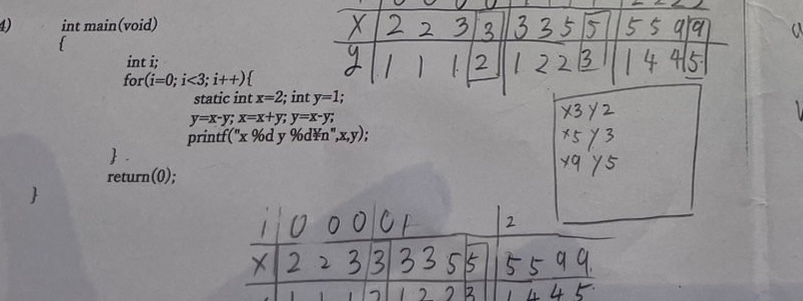 4) int main(void)
{
int i;
for(i=0; i<3; i++){
static int x=2; int y=1;
y=x-y; x=x+y; y=x-y;
printf("x %d y %d¥n",x,y);
}
return(0);
}
X 2 2 3 3 3 3 5 5 5 5 9 9
y 1 1 1 2 1 2 2 3 1 4 4 5
x3 y2
x5 y3
x9 y5
i 0 0 0 0 1 2
X 2 2 3 3 3 3 5 5 5 5 9 9
1 1 1 2 1 2 2 3 1 4 4 5